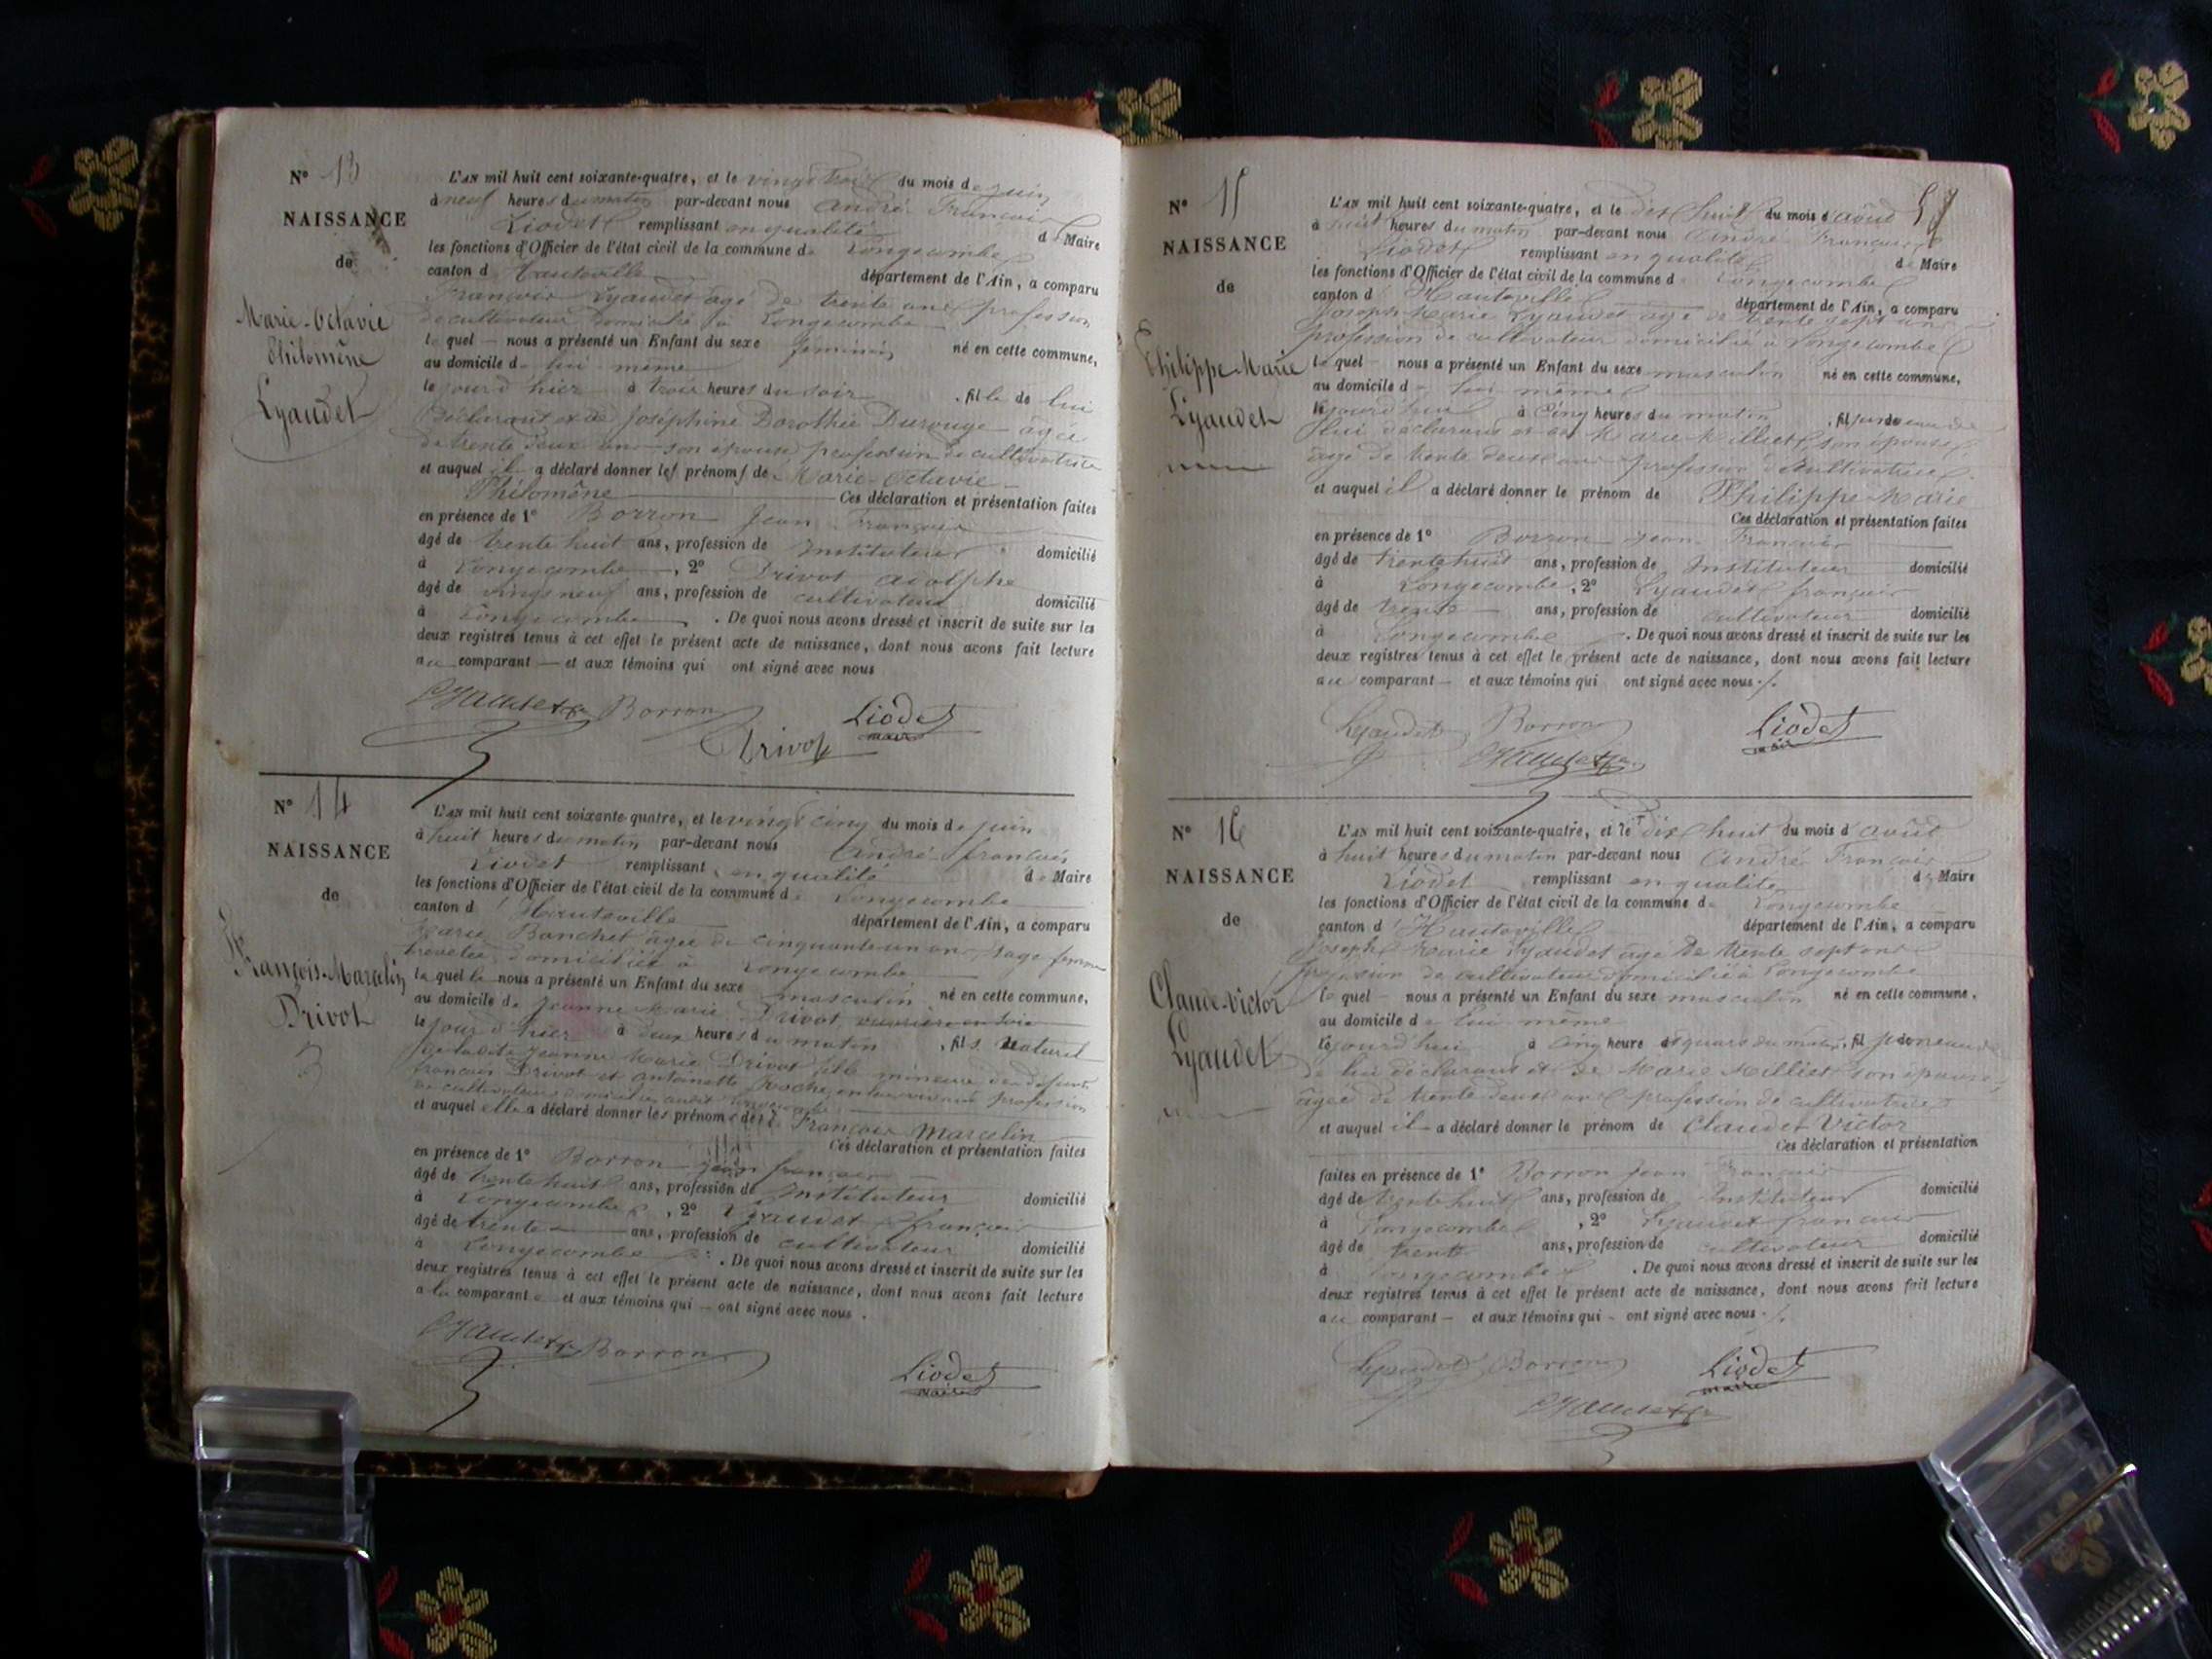 N° 13
NAISSANCE
de
Marie-Octavie
Philomène
Lyaudet
L'AN mil huit cent soixante-quatre, et le vingt trois du mois de juin
à neuf heures du matin par-devant nous André François
Liodet remplissant en qualité de Maire
les fonctions d'Officier de l'état civil de la commune de Longecombe
canton d'Hauteville département de l'Ain, a comparu
François Lyaudet âgé de trente ans profession
de cultivateur domicilié à Longecombe
lequel nous a présenté un Enfant du sexe féminin né en cette commune,
au domicile de lui même
le jour d'hier à trois heures du soir, fille de lui
déclarant et de Joséphine Dorothée Durouge âgée
de trente deux ans son épouse profession de cultivatrice
et auquel il a déclaré donner les prénoms de Marie-Octavie
Philomène Ces déclaration et présentation faites
en présence de 1° Borron Jean François
âgé de trente huit ans, profession de Instituteur domicilié
à Longecombe, 2° Drivot adolphe
âgé de vingt neuf ans, profession de cultivateur domicilié
à Longecombe. De quoi nous avons dressé et inscrit de suite sur les
deux registres tenus à cet effet le présent acte de naissance, dont nous avons fait lecture
au comparant et aux témoins qui ont signé avec nous
Lyaudet Borron Liodet
maire
Drivot
N° 14
NAISSANCE
de
François-Marcelin
Drivot
L'AN mil huit cent soixante-quatre, et le vingt cinq du mois de juin
à huit heures du matin par-devant nous André françois
Liodet remplissant en qualité de Maire
les fonctions d'Officier de l'état civil de la commune de Longecombe
canton d'Hauteville département de l'Ain, a comparu
Marie Banchet âgée de cinquante un ans sage femme
brevetée domiciliée à Longecombe
laquelle nous a présenté un Enfant du sexe masculin né en cette commune,
au domicile de Jeanne Marie Drivot ouvrière en soie
le jour d'hier à deux heures du matin, fils naturel
de ladite Jeanne Marie Drivot fille mineure des défunts
françois Drivot et antoinette
de cultivateurs profession
et auquel elle a déclaré donner les prénoms de François Marcelin
Ces déclaration et présentation faites
en présence de 1° Borron jean françois
âgé de trente huit ans, profession de Instituteur domicilié
à Longecombe, 2° Lyaudet françois
âgé de trente ans, profession de cultivateur domicilié
à Longecombe. De quoi nous avons dressé et inscrit de suite sur les
deux registres tenus à cet effet le présent acte de naissance, dont nous avons fait lecture
a la comparante et aux témoins qui ont signé avec nous.
Lyaudet Borron Liodet
maire
N° 15
NAISSANCE
de
Philippe-Marie
Lyaudet
L'AN mil huit cent soixante-quatre, et le dix huit du mois d'août
à huit heures du matin par-devant nous André François
Liodet remplissant en qualité de Maire
les fonctions d'Officier de l'état civil de la commune de Longecombe
canton d'Hauteville département de l'Ain, a comparu
Joseph Marie Lyaudet âgé de trente sept ans
profession de cultivateur domicilié à Longecombe
lequel nous a présenté un Enfant du sexe masculin né en cette commune,
au domicile de lui même
lejourd'hui à cinq heures du matin, fils jumeau de
lui déclarant et de Marie Milliet son épouse
âgé de trente deux ans profession de cultivatrice
et auquel il a déclaré donner le prénom de Philippe Marie
Ces déclaration et présentation faites
en présence de 1° Borron Jean François
âgé de trente huit ans, profession de Instituteur domicilié
à Longecombe, 2° Lyaudet françois
âgé de trente ans, profession de cultivateur domicilié
à Longecombe. De quoi nous avons dressé et inscrit de suite sur les
deux registres tenus à cet effet le présent acte de naissance, dont nous avons fait lecture
au comparant et aux témoins qui ont signé avec nous ./.
Lyaudet Borron Liodet
maire
Lyaudet
N° 16
NAISSANCE
de
Claude-Victor
Lyaudet
L'AN mil huit cent soixante-quatre, et le dix huit du mois d'août
à huit heures du matin par-devant nous André François
Liodet remplissant en qualité de Maire
les fonctions d'Officier de l'état civil de la commune de Longecombe
canton d'Hauteville département de l'Ain, a comparu
Joseph Marie Lyaudet âgé de trente sept ans
profession de cultivateur domicilié à Longecombe
lequel nous a présenté un Enfant du sexe masculin né en cette commune.
au domicile de lui même
lejourd'hui à cinq heure et quart du matin, fils jumeau
de lui déclarant et de Marie Milliet son épouse,
âgée de trente deux ans profession de cultivatrice
et auquel il a déclaré donner le prénom de Claude Victor
Ces déclaration et présentation
faites en présence de 1° Borron Jean François
âgé de trente huit ans, profession de Instituteur domicilié
à Longecombe, 2° Lyaudet françois
âgé de trente ans, profession de cultivateur domicilié
à Longecombe. De quoi nous avons dressé et inscrit de suite sur les
deux registres tenus à cet effet le présent acte de naissance, dont nous avons fait lecture
au comparant et aux témoins qui ont signé avec nous ./.
Lyaudet Borron Liodet
maire
Lyaudet